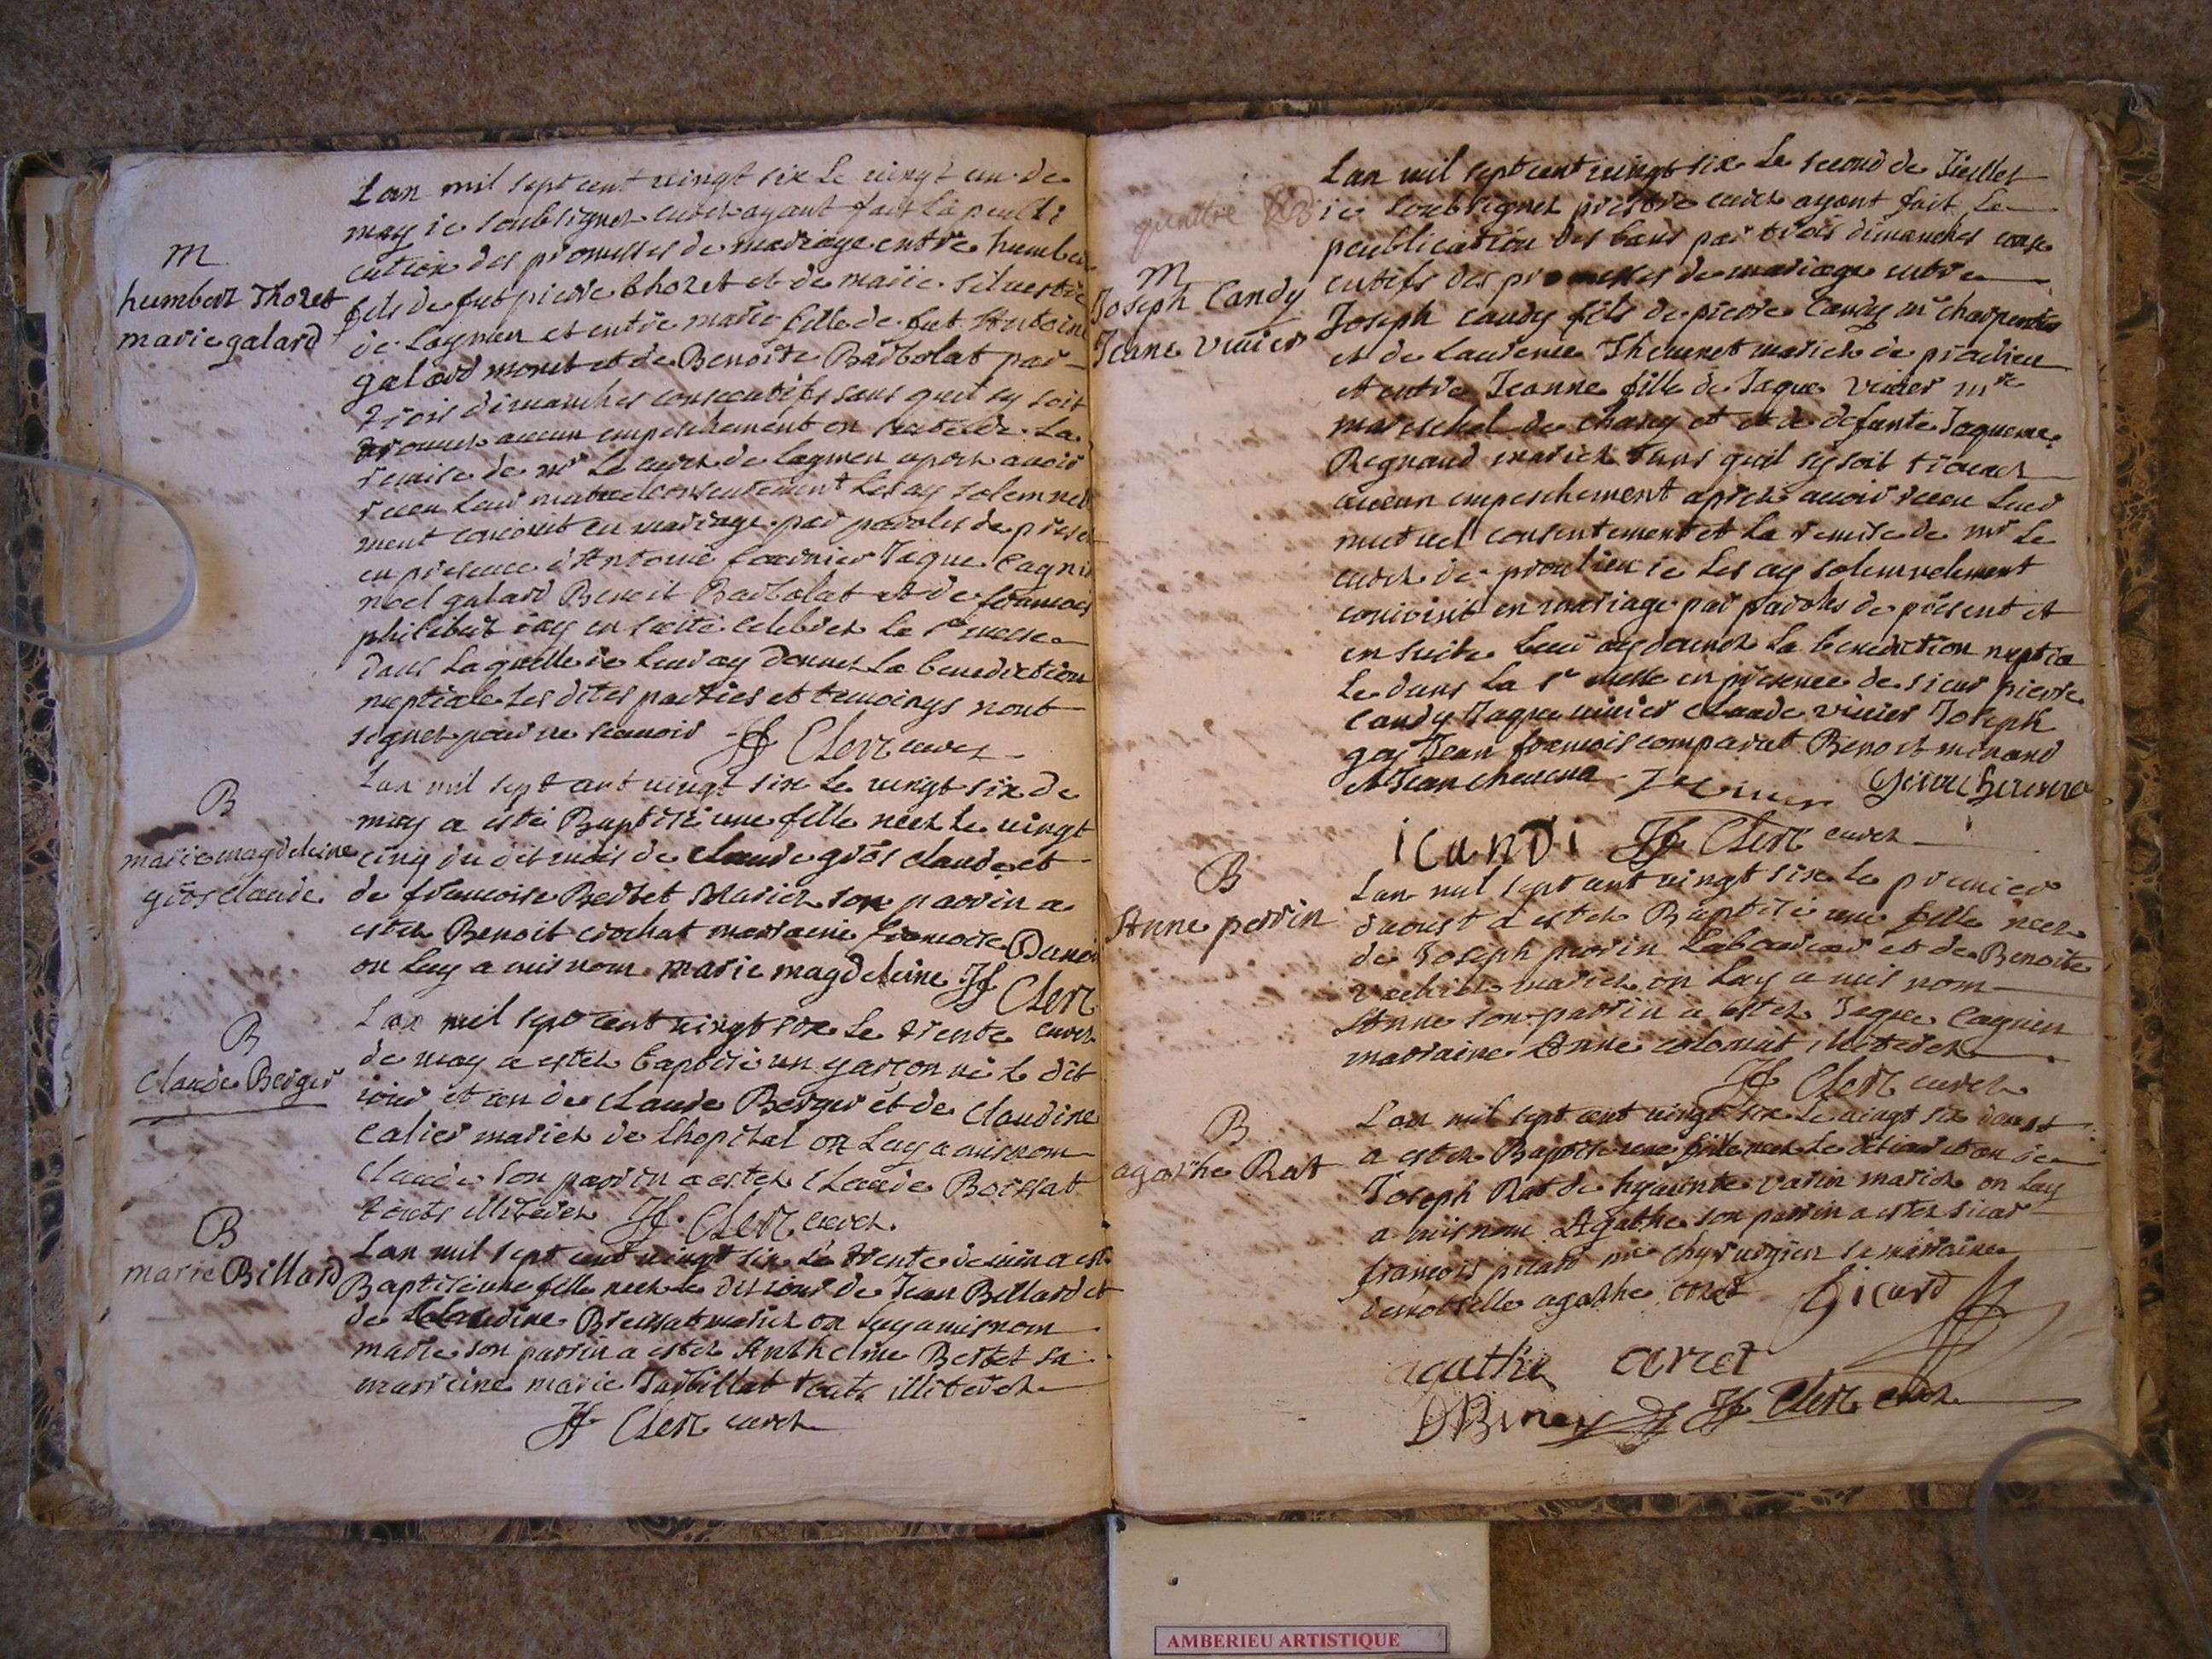 Lan mil sept cent vingt six Le vingt un de
may ie soubsignez curez ayant fait La publi
cation des promesses de mariage entre humber
fils de fut pierre thoret et de marie silvestre
de Lagnieu et entre marie fille de fut Antoine
galard monet et de Benoite Barbolat par
trois dimanches consecutifs sans quil sy soit
trouvez aucun empeschement en suite de La
remise de mr Le curez de Lagnieu aprez avoir
receu Leur mutuel consentement Les ay solemnel
ment conioint en mariage par paroles de presen
en presence d'Antoine fournier Jaque Cagni
noel galard Benoit Barbolat et de francois
philibert iay en suite celebrez La ste messe
dans Laquelle ie Leur ay donnez La benediction
neptiale Les dites parties et temoings nont
signez pour ne scavoir JJ Clerc curez
m
humbert Thoret
marie galard
Lan mil sept cent vingt six Le vingt six de
may a esté Baptisé une fille neez Le vingt
cinq du dit mois de claude gros claude et
de francoise Berbet Mariez son parrin a
estez Benoit crochat marraine francoise
on Luy a mis nom marie magdeleine JJ Clerc
curez
B
marie magdeleine
gros claude
Lan mil sept cent vingt six Le trente
de may a estez baptisé un garcon né Le dit
iour et an de claude Berger et de claudine
Calier mariez de Lhopital on Luy a mis nom
claude son parrin a estez claude Boissat
touts illiterez JJ Clerc curez
B
Claude Berger
Lan mil sept cent vingt six Le trente de iuin a est
Baptisé une fille neez Le dit iour de Jean Billard et
de Claudine mariez on Luy a mis nom
marie son parrin a estez Anthelme Berbet sa
marreine marie Tarbillat touts illiterez
JJ Clerc curez
B
marie Billard
Lan mil sept cent vingt six Le second de Juillet
ie soubsignez prestre curez ayant fait La
publication des bans par trois dimanches conse
cutifs des promesses de mariage entre
Joseph candy fils de pierre Candy mr charpentier
et de Laurence Thevenet mariez de pradieu
et entre Jeanne fille de Jaque Vivier mre
mareschal de chasey et de defunte Jaqueme
Regnaud mariez sans quil sy soit trouvez
aucun empeschement aprez avoir receu Leur
mutuel consentement et La remise de mr Le
curez de proulieu ie Les ay solemnelement
conioint en mariage par paroles de present et
en suite Leur ay donnez La benediction neptia
le dans La ste messe en presence de sieur pierre
Candy Jaque vivier claude vivier Joseph
gay Jean francois comparat Benoit minand
et Jean chevena
icandi JJ Clerc curez
m
Joseph Candy
Jeane Vivier
Lan mil sept cent vingt six Le premier
daoust a estez Baptisé une fille neez
de Joseph perrin Laboureur et de Benoite
mariez on Luy a mis nom
Anne son parrin a estez Jaque Cagnien
marraine Anne colomit illiterez
JJ Clerc curez
B
Anne perrin
Lan mil sept cent vingt six Le vingt six doust
a estez Baptisé une fille neez Le dit iour et an de
Joseph Rat de hyacinte varin mariez on Luy
a mis nom Agathe son parrin a estez sieur
francois picard mre chyrurgien sa marraine
demoiselle agathe
agathe
JJ Clerc curez
B
agathe Rat
AMBERIEU ARTISTIQUE